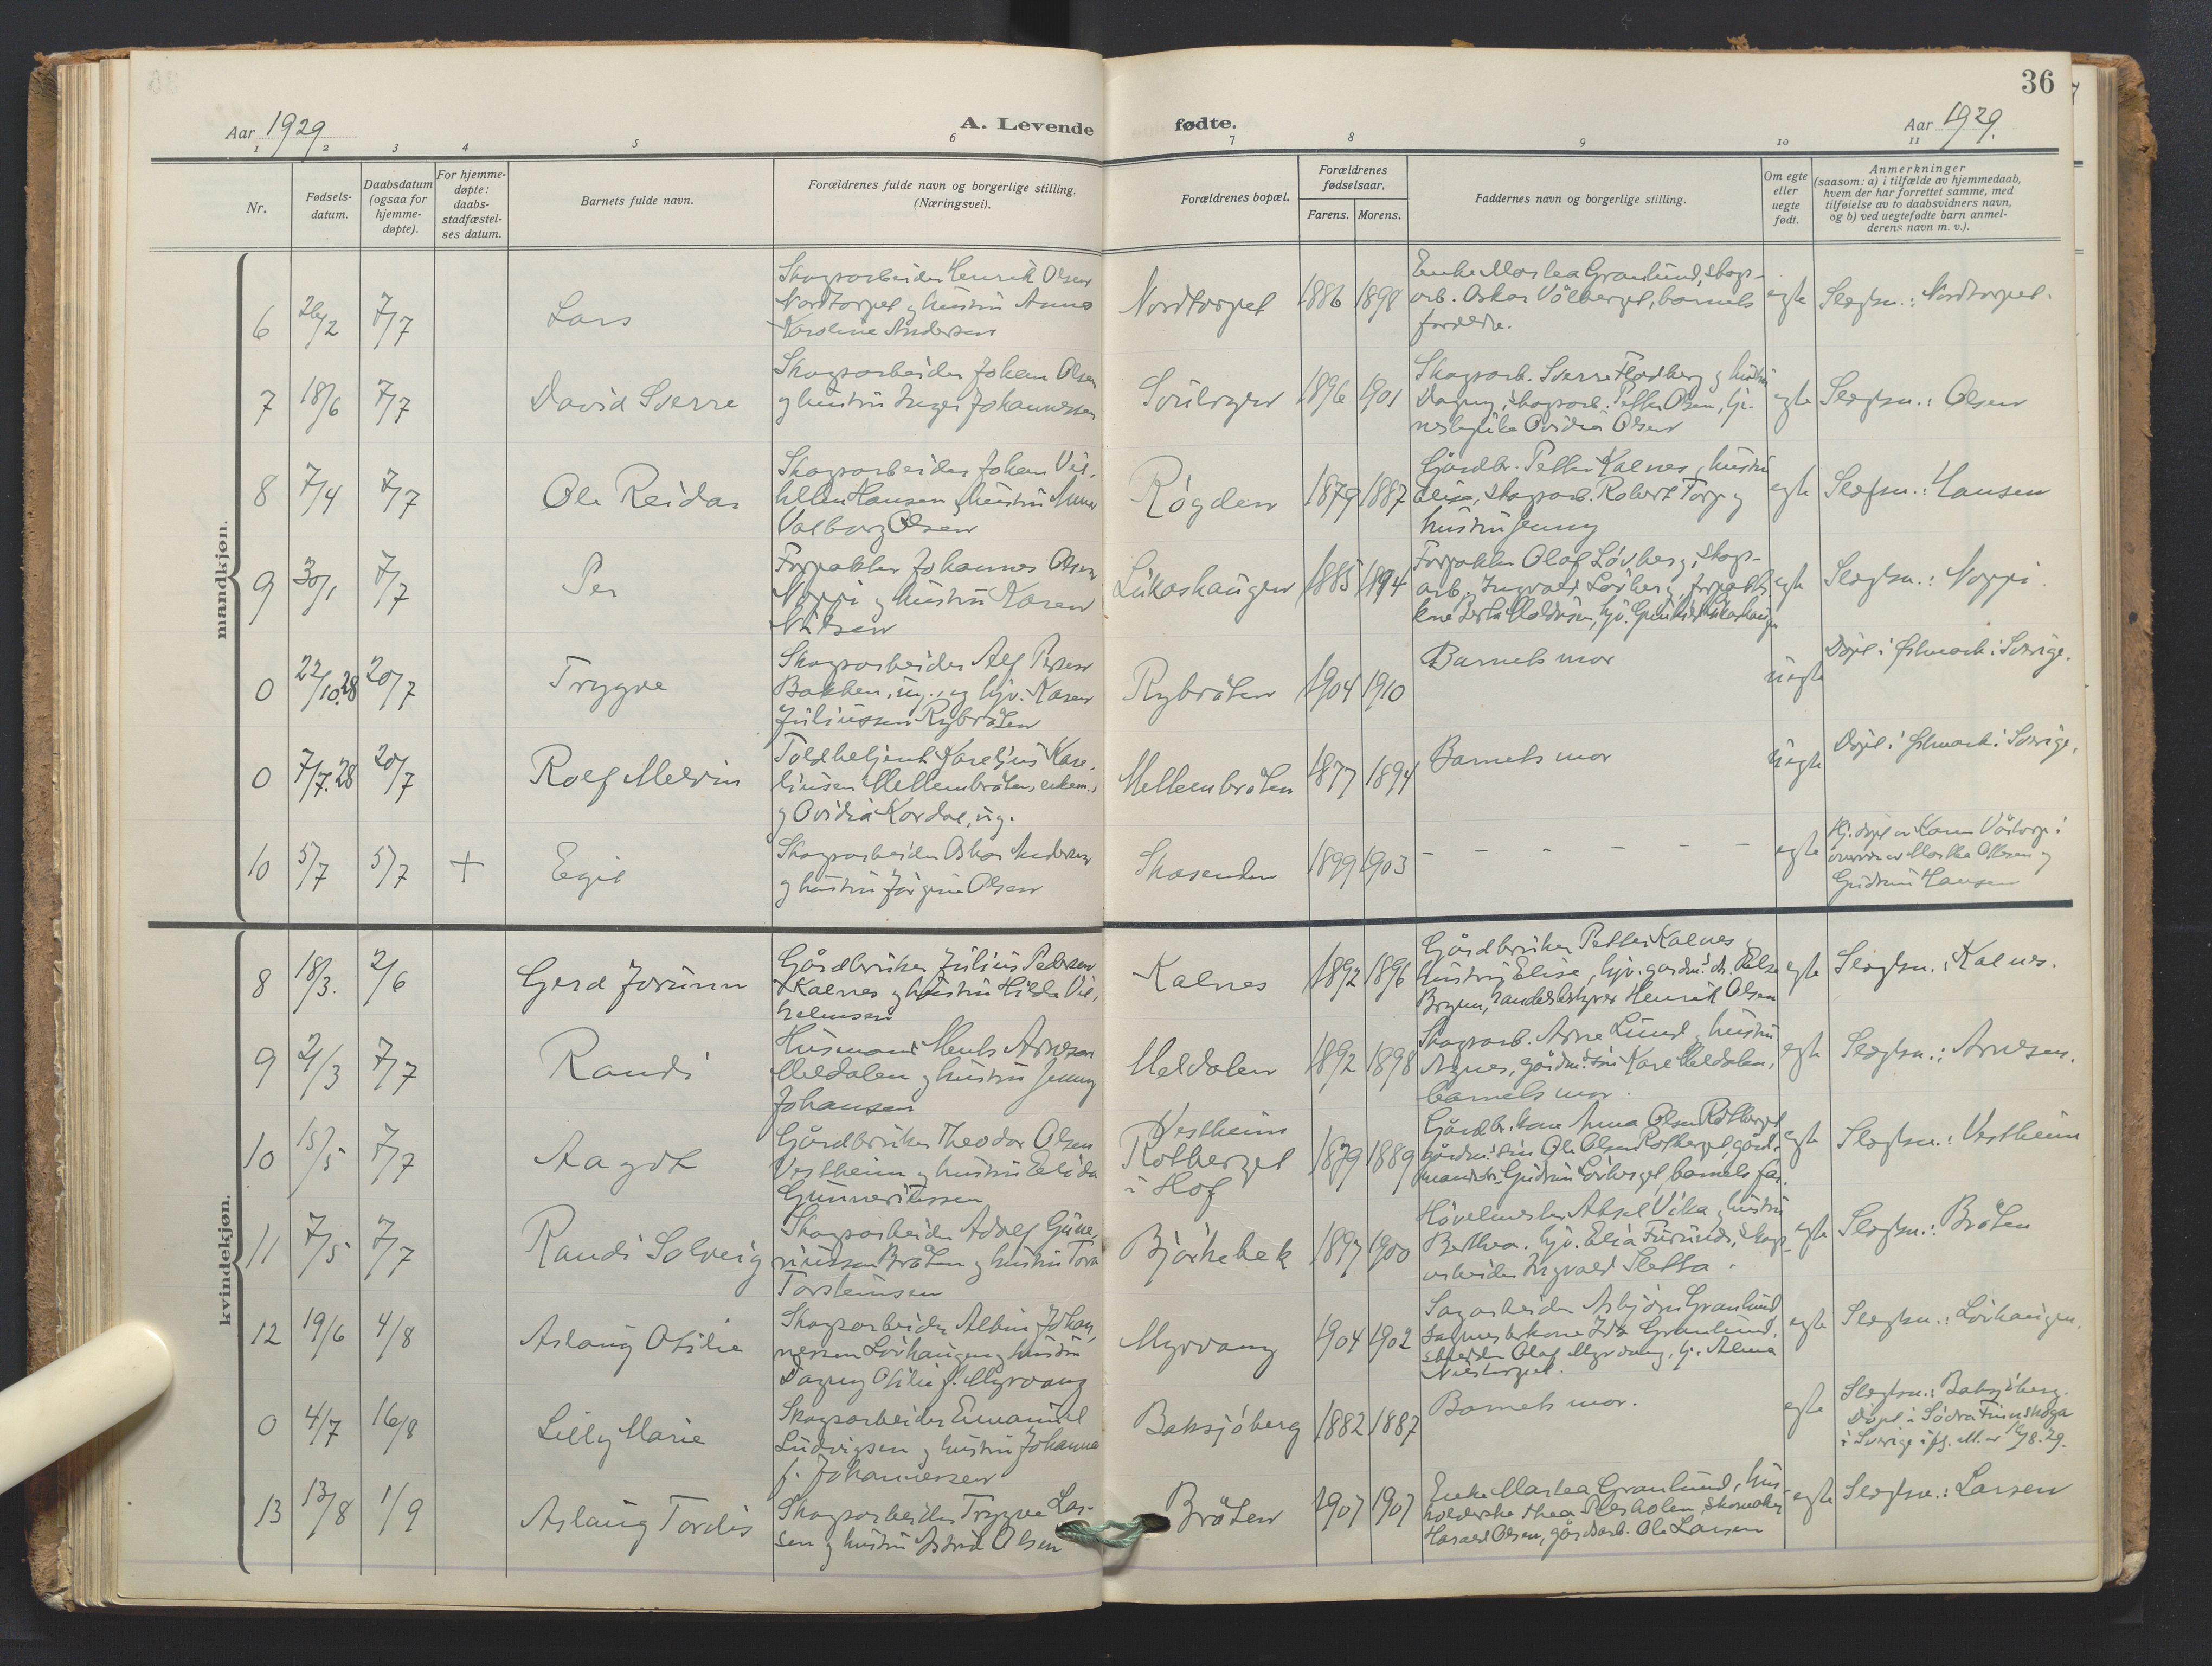 36
Aar 1929
A. Levende fødte.
Aar 1929.
1 2 3 4 5 6 7 8 9 10 11
Nr.
Fødsels-
datum.
Daabsdatum
(ogsaa for
hjemme-
døpte).
For hjemme-
døpte:
daabs-
stadfæstel-
ses datum.
Barnets fulde navn.
Forældrenes fulde navn og borgerlige stilling.
(Næringsvei).
Forældrenes bopæl.
Forældrenes
fødselsaar.
Farens. Morens.
Faddernes navn og borgerlige stilling.
Om egte
eller
uegte
født.
Anmerkninger
(saasom: a) i tilfælde av hjemmedaab,
hvem der har forrettet samme, med
tilføielse av to daabsvidners navn,
og b) ved uegtefødte barn anmel-
derens navn m. v.).
mandkjøn.
6 26/2 7/7 Lars
Skogsarbeider Henrik Olsen
Nordtorpet og hustru Anna
Karoline Andersen
Nordtorpet 1886 1898
Enke Martea Granlund, skogs-
arb. Oskar Vålberget, barnets
foreldre.
egte Slegtsn.: Nordtorpet.
7 18/6 7/7 David Sverre
Skogsarbeider Johan Olsen
og hustru Inger Johannessen
1896 1901
Skogsarb. Sverre Flodberg og hustru
Dagny, skogsarb. Petter Olsen, tje-
Ovidia Olsen
egte Slegtsn.: Olsen
8 7/4 7/7 Ole Reidar
Skogsarbeider Johan Vil-
helm Hansen og hustru Anna
Valborg Olsen
Røgden 1879 1887
Gårdbr. Petter Kalnes, hustru
Elise, skogsarb. Robert Torp og
hustru Jenny
egte Slegtsn.: Hansen
9 30/1 7/7 Per
Forpakter Johannes Olsen
Noppi og hustru Karen
Nilsen
Lukashaugen 1885 1894
Forpakter Olaf Løvberg, skogs-
arb. Ingvald Løvberg, forpakter-
kone
egte Slegtsn.: Noppi.
0 22/10.28 20/7 Trygve
Skogsarbeider Alf Persen
Bakken, ug., og hjv. Karen
Juliussen Rybråten
Rybråten 1904 1910
Barnets mor
uegte Døpt i Østmark i Sverige.
0 7/7.28 20/7 Rolf Melvin
Toldbetjent Karelius Kare-
liusen Mellembråten, enkem.,
og Ovidia Kordal, ug.
Mellembråten 1877 1894
Barnets mor
uegte Døpt i Østmark i Sverige.
10 5/7 5/7 + Egil
Skogsarbeider Oskar Andersen
og hustru Jørgine Olsen
Skasenden 1899 1903
- - - - - - -
egte Hj. døpt av Karen Våstorp i
overvær av Martha Olsen og
Gudrun Hansen
kvindekjøn.
8 18/3. 2/6 Gerd Jorunn
Gårdbruker Julius Pedersen
Kalnes og hustru Hilda Vil-
helmsen
Kalnes 1892 1896
Gårdbruker Petter Kalnes,
hustru Elise, hjv. gårdm. dt.
handelsbestyrer Henrik Olsen
egte Slegtsn.: Kalnes.
9 2/3 7/7 Randi
Husmand Ments Arnesen
Meldalen og hustru Jenny
Johansen
Meldalen 1892 1898
Skogsarb. Arne Lund og hustru
Agnes, gårdm. søn Kare Meldalen,
barnets mor.
egte Slegtsn.: Arnesen.
10 15/5 7/7 Aagot
Gårdbruker Theodor Olsen
Vestheim og hustru Elida
Gunneriussen
Vestheim
Rotberget
i Hof
1879 1889
Gårdbr. kone Anna Olsen Rotberget
gårdm. søn Ole Olsen Rotberget, gård-
mandsdt. Gudrun Løvberget, barnets far.
egte Slegtsn.: Vestheim
11 7/5 7/7 Randi Solveig
Skogsarbeider Adolf Gune-
riussen Bråten og hustru Tora
Torsteinsen
Bjørkebek 1897 1900
Høvelmester Aksel Vika, hustru
Berthea. hjv. Elia Furund, skogs-
arbeider Ingvald Sletta.
egte Slegtsn.: Bråten
12 19/6 4/8 Aslaug Otilie
Skogsarbeider Albin Johan-
nessen Løvhaugen og hustru
Dagny Otilie f. Myrvang
Myrvang 1904 1902
Sagarbeider Asbjørn Granlund
sagmesterkone Ida Granlund,
Olaf Myrvang, tj. Alma
egte Slegtsn.: Løvhaugen.
0 4/7 16/8 Lilly Marie
Skogsarbeider Emanuel
Ludvigsen og hustru Johanna
f. Johannessen
Baksjøberg 1882 1887
Barnets mor.
egte Slegtsn.: Baksjøberg.
Døpt i Södra Finnskoga
i Sverige ifg. M. av 16/8.29.
13 13/8 1/9 Aslaug Tordis
Skogsarbeider Trygve Lar-
sen og hustru Astrid Olsen
Bråten 1907 1907
Enke Martea Granlund, hus-
holderske Thea skomaker
Harald Olsen, gårdsarb. Ole Larsen
egte Slegtsn.: Larsen